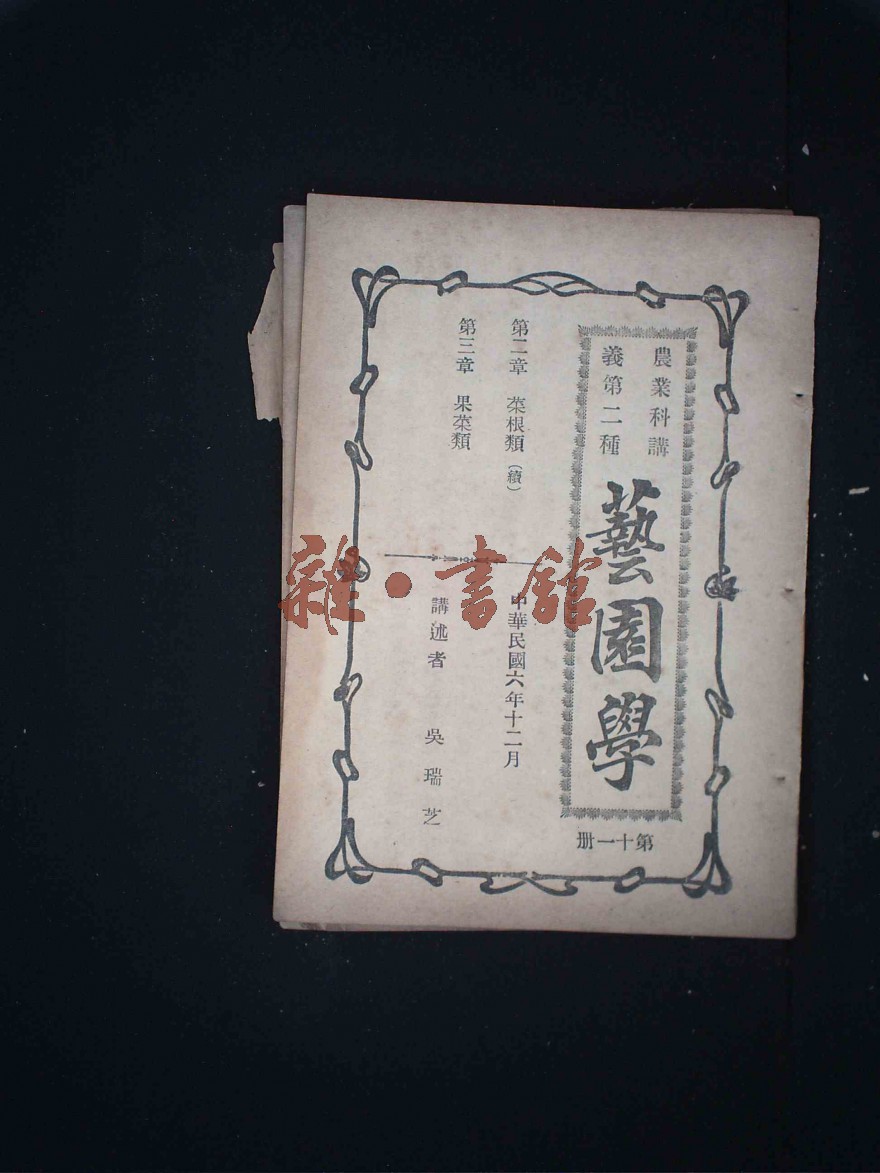 農業科講
義第二種
藝園學
第十一册
第二章 菜根類(續)
第三章 果菜類
中華民國六年十二月
講述者 吳瑞芝
雜·書館